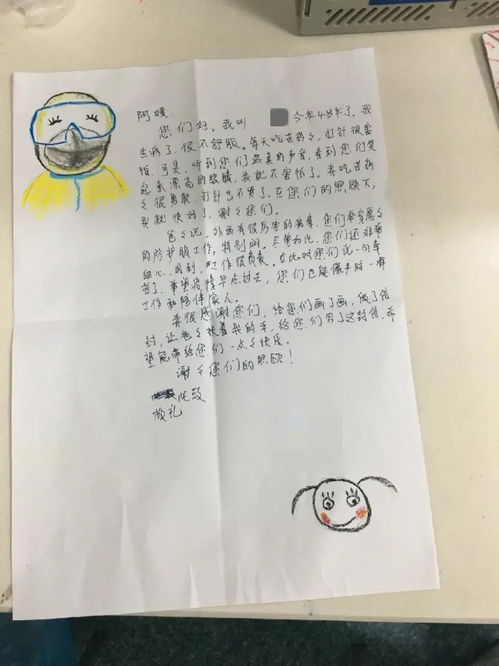 阿姨:
您们好,我叫 今年4岁半了。我
生病了,很不舒服,每天吃苦药,打针很害
怕,可是,听到您们温柔的声音,看到您们笑
起来漂亮的眼睛,我就不害怕了。我吃苦药
很勇敢,打针也不哭了。在您们的照顾下,
我就快好了,谢々您们。
爸々说,外面有很厉害的病毒,您们要穿厚々
的防护服工作,特别闷,尽管如此,您们还非常
细心、周到,工作很负责,在此对您们说一句辛
苦了。希望疫情早点过去,您们也能像平时一样
工作和陪伴家人。
我很感谢您们,给您们画了画,做了信
封,让爸々扶着我的手,给您们写了这封信,希
望能带给您们一点々快乐。
谢々您们的照顾!
此致
敬礼